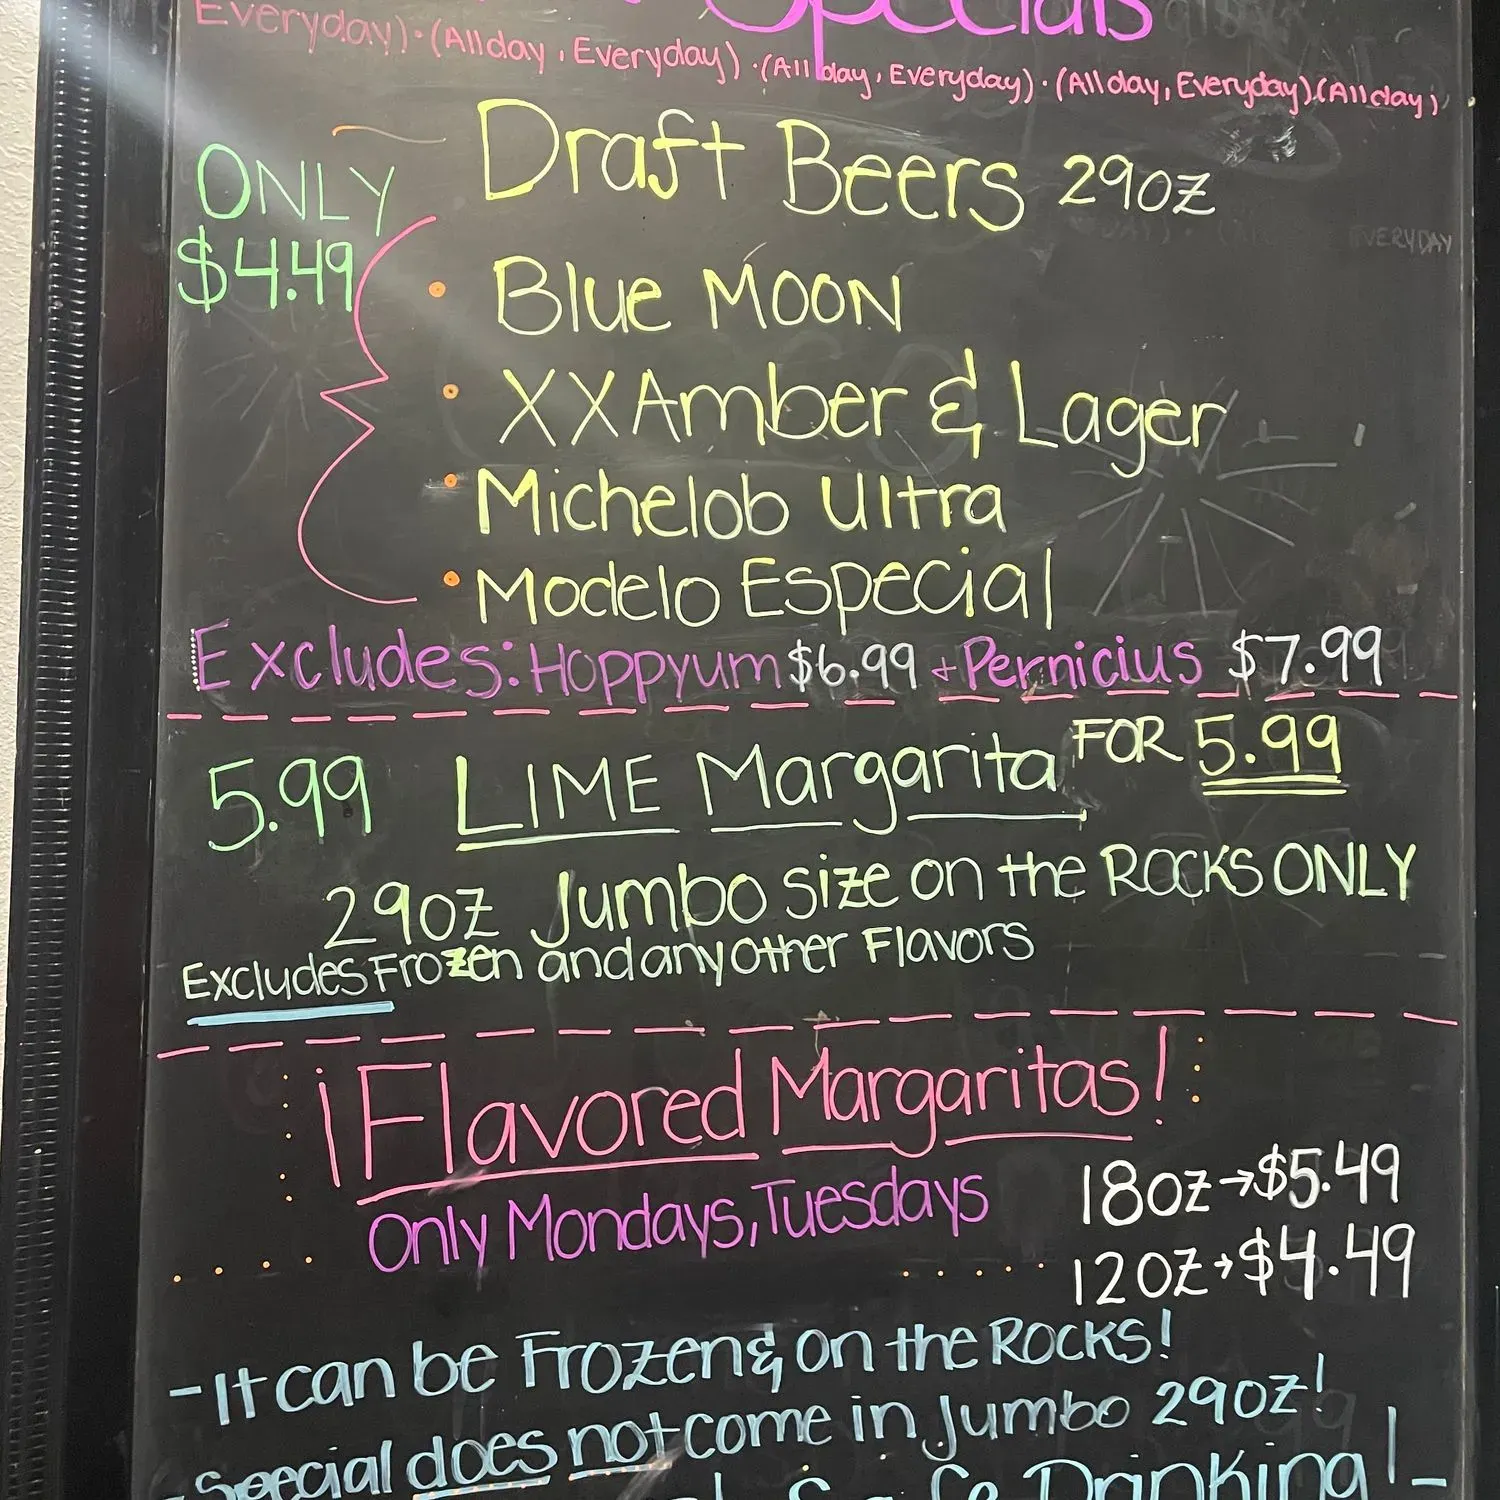 Specials
Everyday) · (All day, Everyday) · (All day, Everyday) · (All day, Everyday) · (All day,
Draft Beers 29oz
ONLY
$4.49
• Blue MOON
• XX Amber & Lager
• Michelob Ultra
• Modelo Especial
Excludes: Hoppyum $6.99 + Pernicius $7.99
5.99 LIME Margarita FOR 5.99
29oz Jumbo Size on the ROCKS ONLY
Excludes Frozen and any other Flavors
¡Flavored Margaritas!
Only Mondays, Tuesdays
18oz → $5.49
12oz → $4.49
- It can be Frozen & on the ROCKS!
- Special does not come in Jumbo 29oz!
Safe Drinking! -